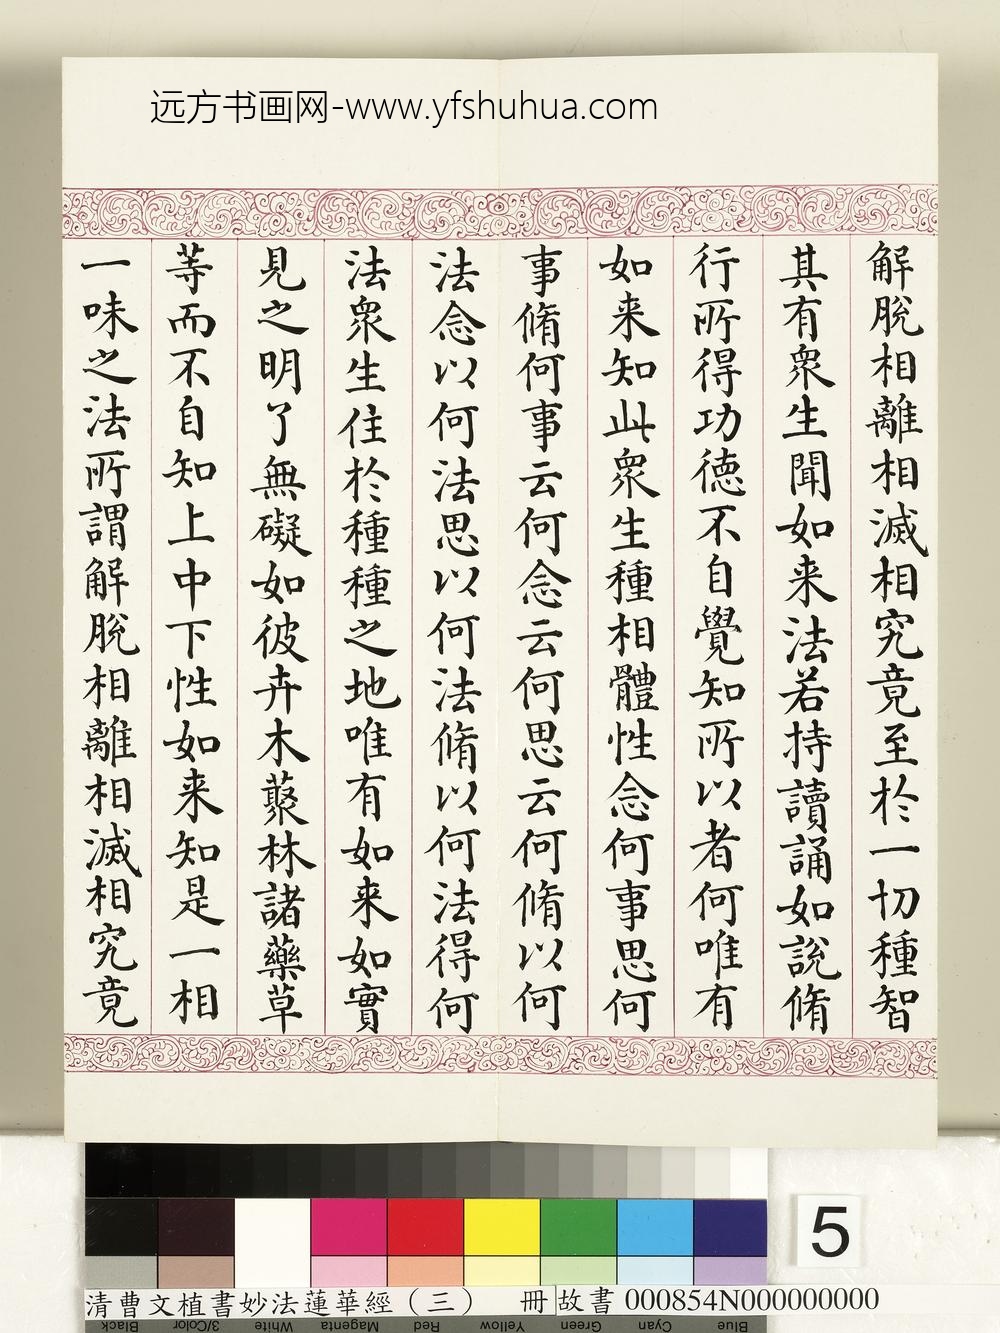 远方书画网-www.yfshuhua.com
解脫相離相滅相究竟至於一切種智
其有眾生聞如来法若持讀誦如說脩
行所得功德不自覺知所以者何唯有
如来知此眾生種相體性念何事思何
事脩何事云何念云何思云何脩以何
法念以何法思以何法脩以何法得何
法眾生住於種種之地唯有如来如實
見之明了無礙如彼卉木藂林諸藥草
等而不自知上中下性如来知是一相
一味之法所謂解脫相離相滅相究竟
5
清曹文植書妙法蓮華經（三） 冊 故書 000854N000000000
Black 3/Color White Magenta Red Yellow Green Cyan Blue